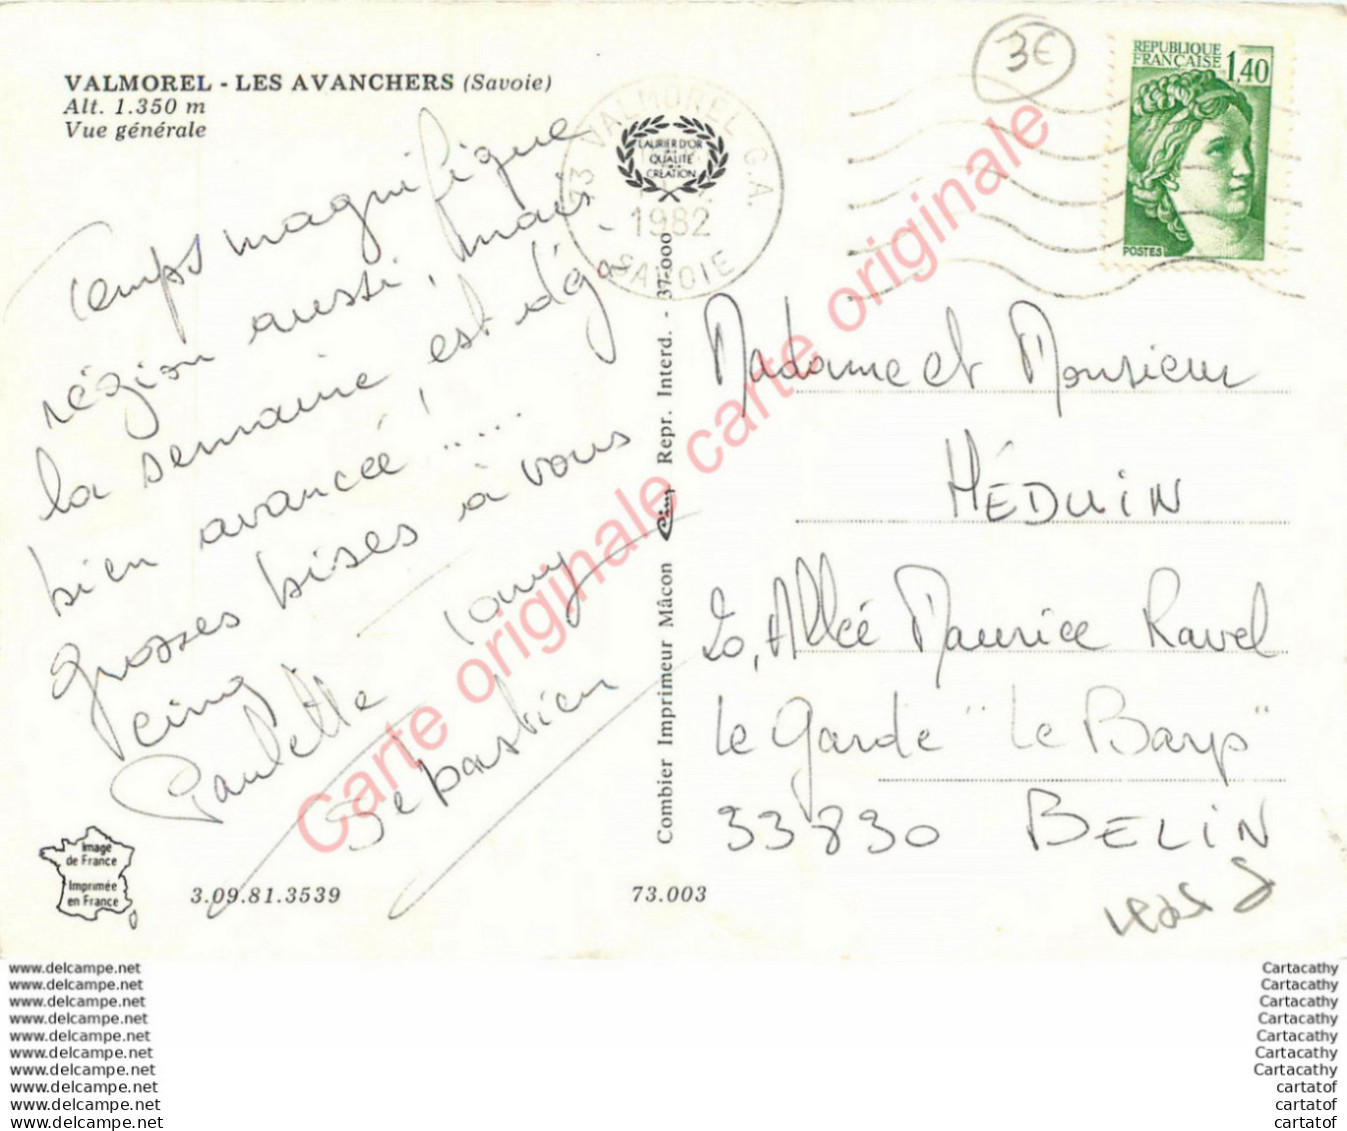 VALMOREL - LES AVANCHERS (Savoie)
Alt. 1.350 m
Vue générale
Temps magnifique
région aussi, mais
la semaine est déjà
bien avancée ! .....
grosses bises à vous
cinq
Paulette Tony
Sébastien
3€
RÉPUBLIQUE
FRANÇAISE 1,40
POSTES
73 VALMOREL G.A.
1982
SAVOIE
LAURIER D'OR
QUALITÉ
CRÉATION
Madame et Monsieur
MÉDUIN
20, Allée Maurice Ravel
Le Garde "Le Barp"
33830 BELIN
Combier Imprimeur Mâcon Cim Repr. Interd. - 37.000
Carte originale carte originale carte originale
Image
de France
Imprimée
en France
3.09.81.3539
73.003
www.delcampe.net
www.delcampe.net
www.delcampe.net
www.delcampe.net
www.delcampe.net
www.delcampe.net
www.delcampe.net
www.delcampe.net
www.delcampe.net
www.delcampe.net
Cartacathy
Cartacathy
Cartacathy
Cartacathy
Cartacathy
Cartacathy
Cartacathy
cartatof
cartatof
cartatof